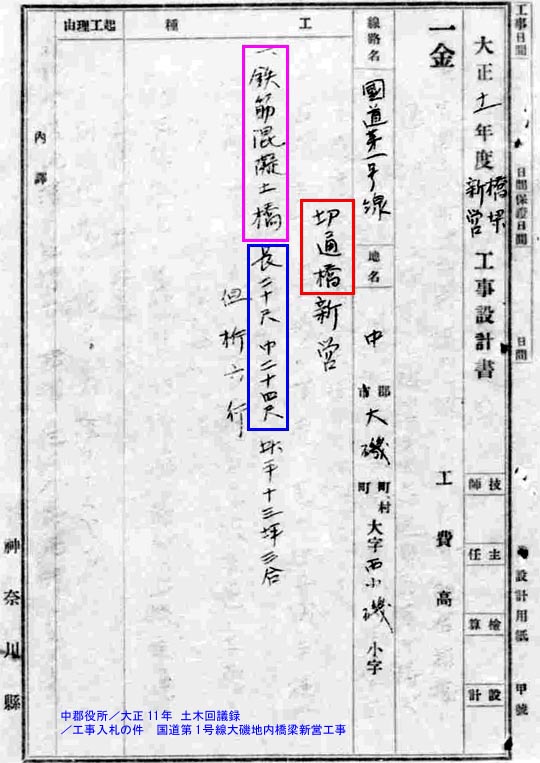 工事日間
日間保證日間
日間
設計用紙 甲號
大正十一年度橋梁新営工事設計書
技師
主任
檢算
設計
一金
工費高
線路名 國道第一号線 地名 中郡市大磯町村町大字西小磯小字
工種
起工理由
切通橋新営
一鉄筋混凝土橋 長二十尺 巾二十四尺 坪平十三坪三合
但桁六行
内譯
神奈川縣
中郡役所／大正11年 土木回議録
／工事入札の件 国道第1号線大磯地内橋梁新営工事